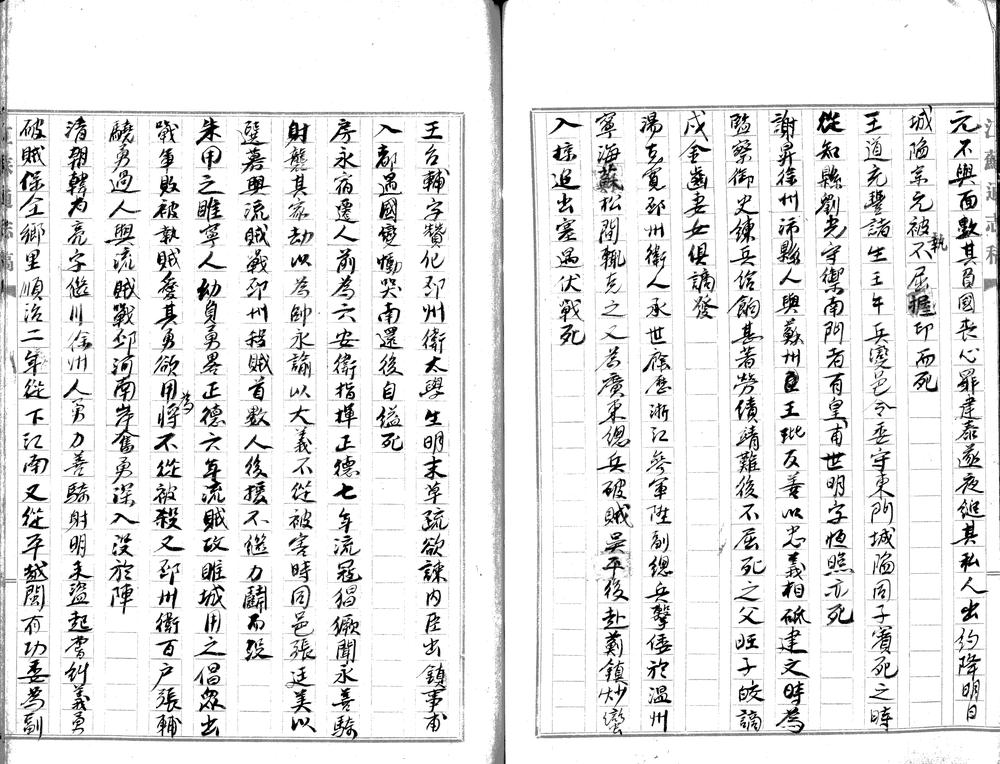 元不與面數其負國喪心罪建泰遂夜縋其私人出約降明日
城陷京元被執不屈握印而死
王道充豐諸生壬午兵變邑令委守東門城陷同子賓死之時
從知縣劉光守禦南門者有皇甫世明字恆照亦死
謝昇徐州沛縣人與蘇州王玭友善以忠義相砥建文時為
監察御史鍊兵給餉甚著勞績靖難後不屈死之父旺子皎謫
戍金齒妻女俱謫發
湯克寬邳州衛人承世廕歷浙江參軍陞副總兵擊倭於溫州
寧海蘇松間輒克之又為廣東總兵破賊吳平後赴薊鎮炒蠻
入掠追出塞遇伏戰死
王台輔字贊化邳州衛太學生明末草疏欲諫內臣出鎮事甫
入都遇國變慟哭南還後自縊死
房永宿遷人前為六安衛指揮正德七年流寇猖獗聞永善騎
射襲其家劫以為帥永諭以大義不從被害時同邑張廷美以
歷著與流賊戰邳州殺賊首數人後援不繼力鬬而歿
朱用之睢寧人幼負勇畧正德六年流賊攻睢城用之倡眾出
戰軍敗被執賊愛其勇欲用為將不從被殺又邳州衛百户張輔
驍勇過人與流賊戰邳河南岸奮勇深入沒於陣
清朝韓為亮字繼川徐州人勇力善騎射明末盜起嘗糾義勇
破賊保全鄉里順治二年從下江南又從平越閩有功委為副
江蘇通志稿